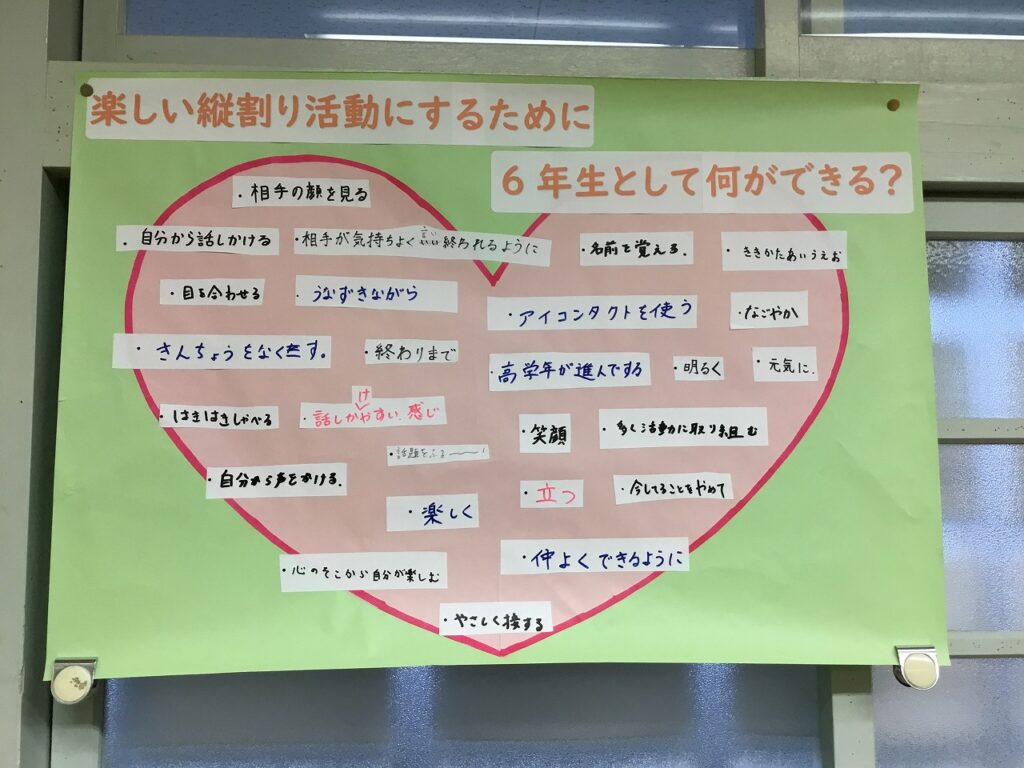 楽しい縦割り活動にするために
6年生として何ができる?
・相手の顔を見る
・自分から話しかける
・相手が気持ちよく言い終われるように
・名前を覚える.
・ききかたあいうえお
・目を合わせる
・うなずきながら
・アイコンタクトを使う
・なごやか
・きんちょうをなくす。
・終わりまで
・高学年が進んでする
・明るく
・元気に.
・はきはきしゃべる
・話しかけやすい感じ
・笑顔
・多く活動に取り組む
・話題をふる〜!
・自分から声をかける.
・立つ
・今してることをやめて
・楽しく
・仲よくできるように
・心のそこから自分が楽しむ
・やさしく接する